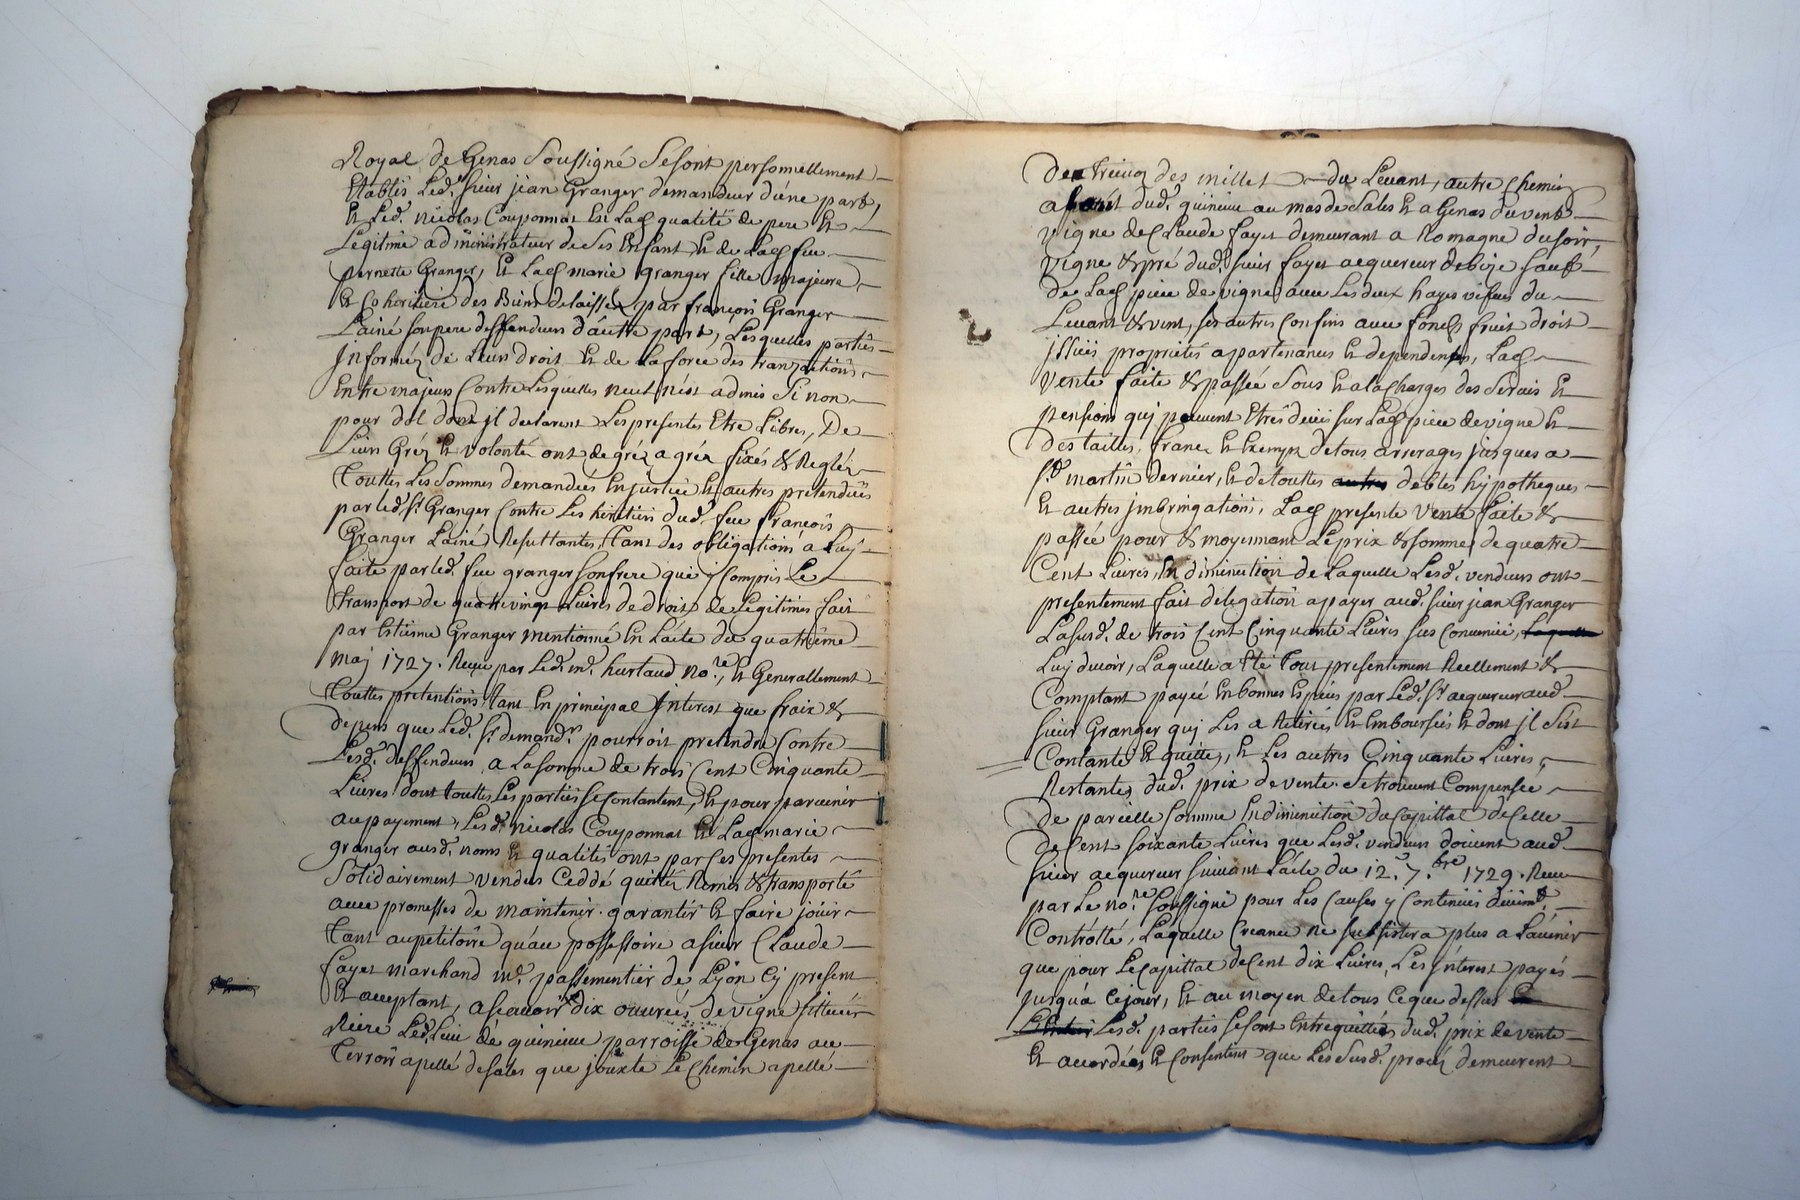 Royal de Genas soussigné se sont personnellement
Etablis Led. sieur jean Granger demandeur dune part,
Et Led. nicolas Couponnat En Lad. qualité de pere Et
Legitime administrateur de ses Enfant Et de Lad. feu
pernette Granger, Et Lad. marie granger fille majeure
Et Coheritiere des Biens delaissés par françois Granger
Lainé son pere deffendeurs d'autre part, Lesquelles parties
jnformés de Leurs droit Et de La force des transactions
Entre majeurs Contre Lesquelles neul n'est admis Si non
pour dol dont jl declarent Les presentes Etre Libres, De
Leurs Gréz Et volonté ont de gré a gré fixés & Reglés
Touttes Les Sommes demandées En justice Et autres pretendües
par led. Sr. Granger Contre Les heritiers dud. feu françois
Granger Lainé Resultantes, tant des obligations a Luy
faite par led. feu granger son frere que y Compris Le
transport de quatrevingt Livres de droits de Legitimes fait
par Estienne Granger mentionné En L'acte du quatrième
maj 1727. Reçu par Led. me. hurtaud nore., Et Generallement
Touttes pretentions tant En principal jnterest que fraix &
depens que Led. Sr. demandr. pourroit pretendre Contre
Lesd. deffendeurs a La somme de trois Cent Cinquante
Livres dont touttes Les parties se Contantent, Et pour parvenir
au payement, Lesd. nicolas Couponnat Et Lad. marie
granger ausd. noms Et qualités ont par Ces presentes
Solidairement vendus Ceddé quittés Remis & transporté
avec promesses de maintenir garantir Et faire joüir
tant au petitoire qu'au possessoire a sieur Claude
fayet marchand me. passementier de Lyon Cy present
Et acceptant, a scavoir dix ouvrées de vigne sittuées
Riere Led. Lieu de quincieu parroisse de Genas au
Terroir apellé de sales que jouxte Le Chemin apellé
de millet du Levant, autre Chemin
dud. quincieu au mas de Sales Et a Genas du vent
vigne de Claude fayet demeurant a Romagne du soir,
vigne & pré dud. sieur fayet acquereur de bize sauf
de Lad. piece de vigne avec Les deux hayes vifves du
Levant & vent, ses autres Confins avec fonds fruit droit
jssües proprietés apartenances Et dependences, Lad.
vente faite & passée sous Et a la Charges des Servis Et
pensions quj peuvent Etre deües sur Lad. piece de vigne Et
des tailles, franc Et Exempt de tous arrerages jusques a
St. martin dernier, Et de touttes debtes hypotheques
Et autres jmbringations, Lad. presente vente faite &
passée pour & moyennant Le prix & somme de quatre
Cent Livres, En diminution de Laquelle Lesd. vendeurs ont
presentement fait delegation a payer aud. sieur jean Granger
La susd. de trois Cent Cinquante Livres sus Convenüe,
Luy devoir, Laquelle a Eté tout presentement Reellement &
Comptant payée En bonnes Especes par Led. Sr. acquereur aud.
sieur Granger quj Les a Retirées Et Emboursées Et dont jl s'est
Contanté Et quitte, Et Les autres Cinquante Livres,
Restantes dud. prix de vente se trouvent Compensée
de pareille somme En diminution du Capittal de Celle
de Cent soixante Livres que Lesd. vendeurs doivent aud.
sieur acquereur suivant L'acte du 12e. 7.bre 1729. Receu
par Le nore. soussigné pour Les Causes y Contenües düemt.
Controllé, Laquelle Creance ne subsistera plus a L'avenir
que pour Le Capittal de Cent dix Livres, Les jnterest payés
jusqu'a Ce jour, Et au moyen de tous Ce que dessus
Lesd. parties se sont Entrequittées dud. prix de vente
Et accordées Et Consenties que Les susd. procés demeurent